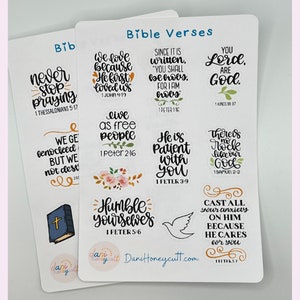 Bible Verses
we love
because
He first
loved us
1 JOHN 4:19
SINCE IT IS
written,
"YOU SHALL
be HOLY,
FOR I AM
HOLY"
1 PETER 1:16
YOU
Lord,
ARE
GOD.
1 KINGS 18:37
live
as free
people
1 Peter 2:16
He is
PATIENT
with
YOU
2 PETER 3:9
There is
our God
1 SAMUEL 2:2
Humble
yourselves
1 PETER 5:6
CAST ALL
your anxiety
ON HIM
BECAUSE
HE CARES
for you
1 PETER 5:7
DaniHoneycutt.com
Bib
never
stop
praying
1 THESSALONIANS 5:17
WE GE
KNOCKED
BUT WE
NOT DES